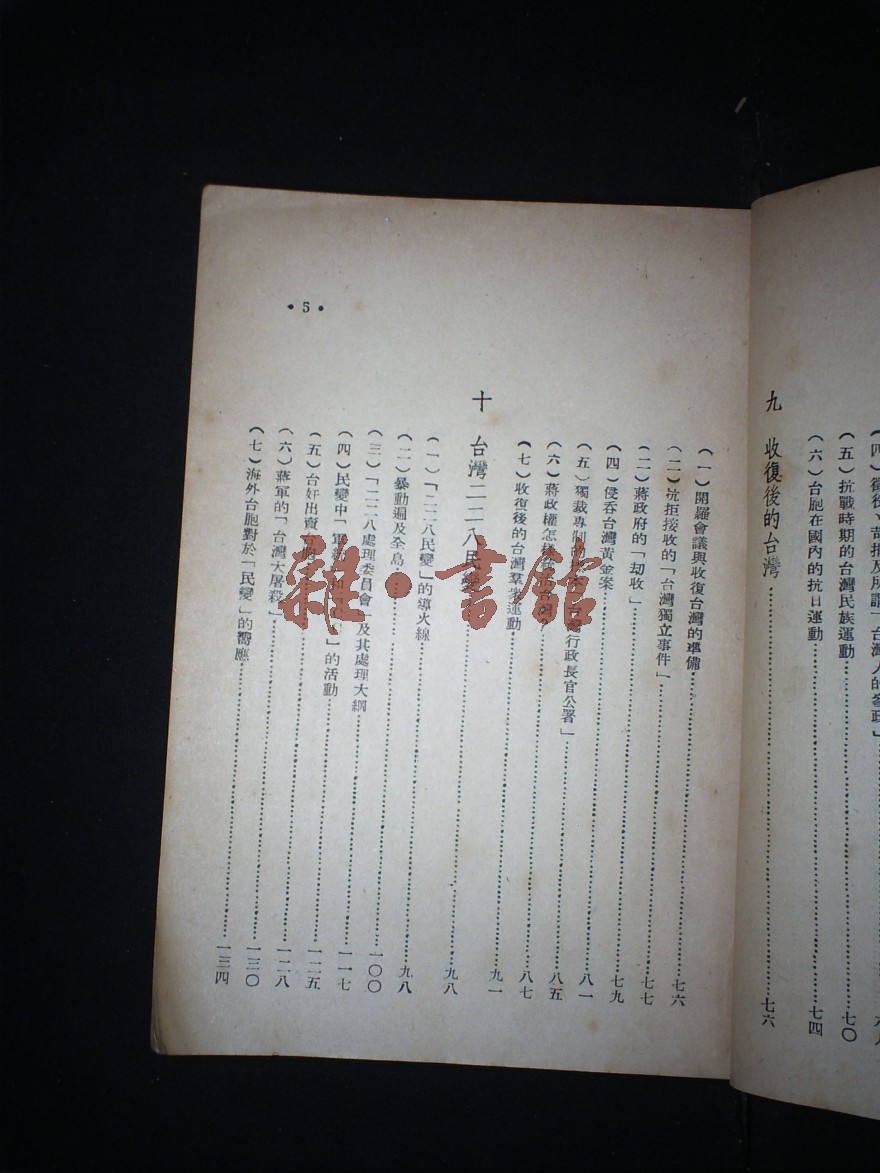 （五）抗戰時期的台灣民族運動……七〇
（六）台胞在國內的抗日運動……七四
九 收復後的台灣……七六
（一）開羅會議與收復台灣的準備……七六
（二）抗拒接收的「台灣獨立事件」……七七
（三）蔣政府的「刧收」……七九
（四）侵吞台灣黃金案……八一
（五）獨裁專制的 行政長官公署」……八五
（六）蔣政權怎樣……八七
（七）收復後的台灣羣眾運動……九一
十 台灣二二八民變……九八
（一）「二二八民變」的導火線……九八
（二）暴動遍及全島……一〇〇
（三）「二二八處理委員會」及其處理大綱……一一七
（四）民變中「軍 」的活動……一二五
（五）台奸出賣台胞……一二八
（六）蔣軍的「台灣大屠殺」……一三〇
（七）海外台胞對於「民變」的響應……一三四
• 5 •
雜・書館